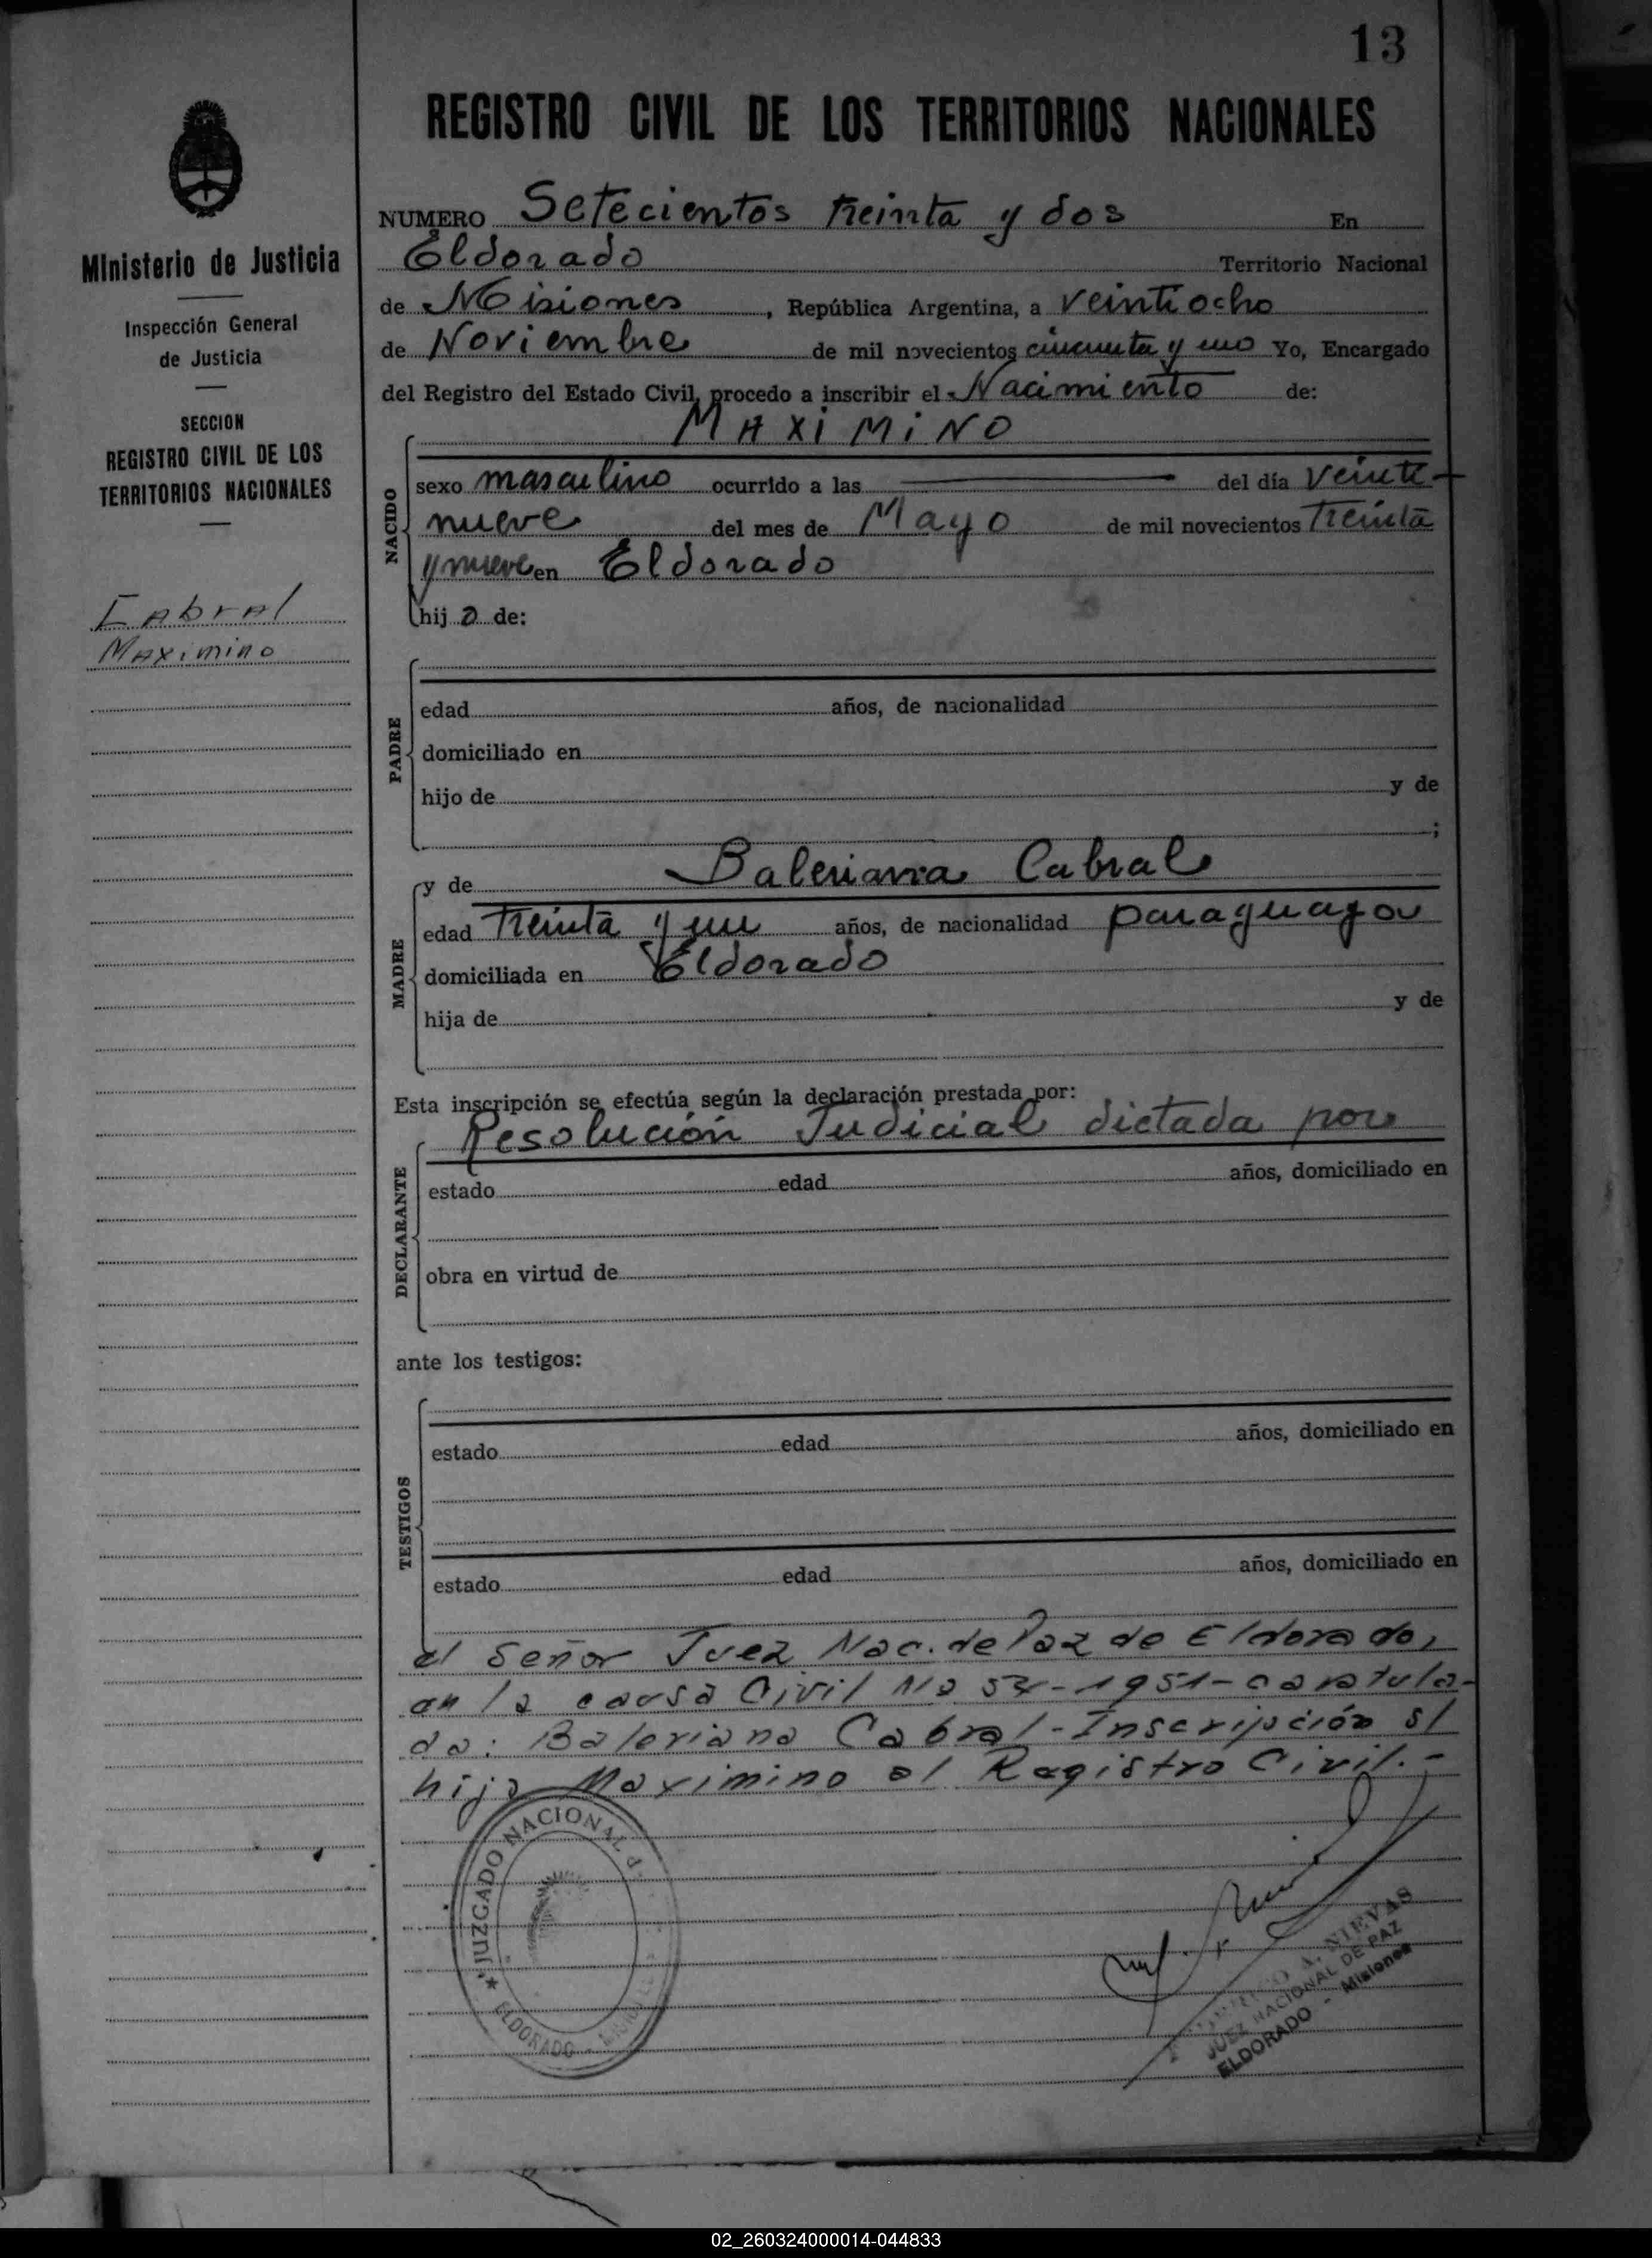 13
REGISTRO CIVIL DE LOS TERRITORIOS NACIONALES
NUMERO Setecientos treinta y dos En
Eldorado Territorio Nacional
de Misiones, República Argentina, a veintiocho
de Noviembre de mil novecientos cincuenta y uno Yo, Encargado
del Registro del Estado Civil, procedo a inscribir el Nacimiento de:
MAXIMINO
NACIDO
sexo masculino ocurrido a las del día veinti-
nueve del mes de Mayo de mil novecientos treinta
y nueve en Eldorado
hijo de:
PADRE
edad años, de nacionalidad
domiciliado en
hijo de y de
;
MADRE
y de Baleriana Cabral
edad treinta y un años, de nacionalidad paraguaya
domiciliada en Eldorado
hija de y de
Esta inscripción se efectúa según la declaración prestada por:
Resolución Judicial dictada por
DECLARANTE
estado edad años, domiciliado en
obra en virtud de
ante los testigos:
TESTIGOS
estado edad años, domiciliado en
estado edad años, domiciliado en
el Señor Juez Nac. de Paz de Eldorado,
en la causa Civil No 54-1951-caratula-
da: Baleriana Cabral-Inscripción s/
hijo Maximino al Registro Civil.-
JUZGADO NACIONAL d
ELDORADO - MISIONES
A. NIEVAS
JUEZ NACIONAL DE PAZ
ELDORADO - Misiones
Ministerio de Justicia
Inspección General
de Justicia
SECCION
REGISTRO CIVIL DE LOS
TERRITORIOS NACIONALES
Cabral
Maximino
02_260324000014-044833